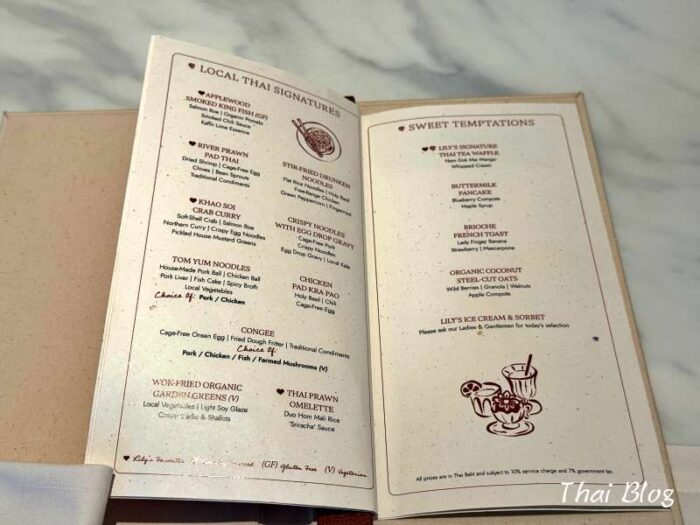 LOCAL THAI SIGNATURES
APPLEWOOD
SMOKED KING FISH (GF)
Salmon Roe | Organic Pomelo
Smoked Chili Sauce
Kaffir Lime Essence
RIVER PRAWN
PAD THAI
Dried Shrimp | Cage-Free Egg
Chives | Bean Sprouts
Traditional Condiments
KHAO SOI
CRAB CURRY
Soft-Shell Crab | Salmon Roe
Northern Curry | Crispy Egg Noodles
Pickled House Mustard Greens
TOM YUM NOODLES
House-Made Pork Ball | Chicken Ball
Pork Liver | Fish Cake | Spicy Broth
Local Vegetables
Choice Of: Pork / Chicken
STIR-FRIED DRUNKEN
NOODLES
Flat Rice Noodles | Holy Basil
Free-Range Chicken
Green Peppercorn | Fingerroot
CRISPY NOODLES
WITH EGG DROP GRAVY
Cage-Free Pork
Crispy Noodles
Egg Drop Gravy | Local Kale
CHICKEN
PAD KRA PAO
Holy Basil | Chili
Cage-Free Egg
CONGEE
Cage-Free Onsen Egg | Fried Dough Fritter | Traditional Condiments
Choice Of
Pork / Chicken / Fish / Farmed Mushrooms (V)
WOK-FRIED ORGANIC
GARDEN GREENS (V)
Local Vegetables | Light Soy Glaze
Crispy Garlic & Shallots
THAI PRAWN
OMELETTE
Duo Hom Mali Rice
'Sriracha' Sauce
Lily's Favorites (GF) Gluten Free (V) Vegetarian
SWEET TEMPTATIONS
LILY'S SIGNATURE
THAI TEA WAFFLE
Nam Dok Mai Mango
Whipped Cream
BUTTERMILK
PANCAKE
Blueberry Compote
Maple Syrup
BRIOCHE
FRENCH TOAST
Lady Finger Banana
Strawberry | Mascarpone
ORGANIC COCONUT
STEEL-CUT OATS
Wild Berries | Granola | Walnuts
Apple Compote
LILY'S ICE CREAM & SORBET
Please ask our Ladies & Gentlemen for today's selection
All prices are in Thai Baht and subject to 10% service charge and 7% government tax.
Thai Blog